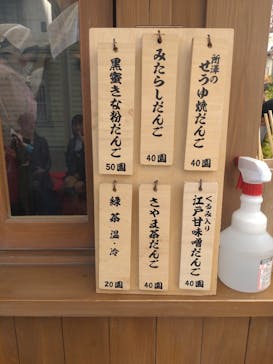 所澤の
せうゆ焼だんご
40園
みたらしだんご
40園
黒蜜きな粉だんご
50園
くるみ入り
江戸甘味噌だんご
40園
さやま茶だんご
40園
緑茶 温・冷
20園